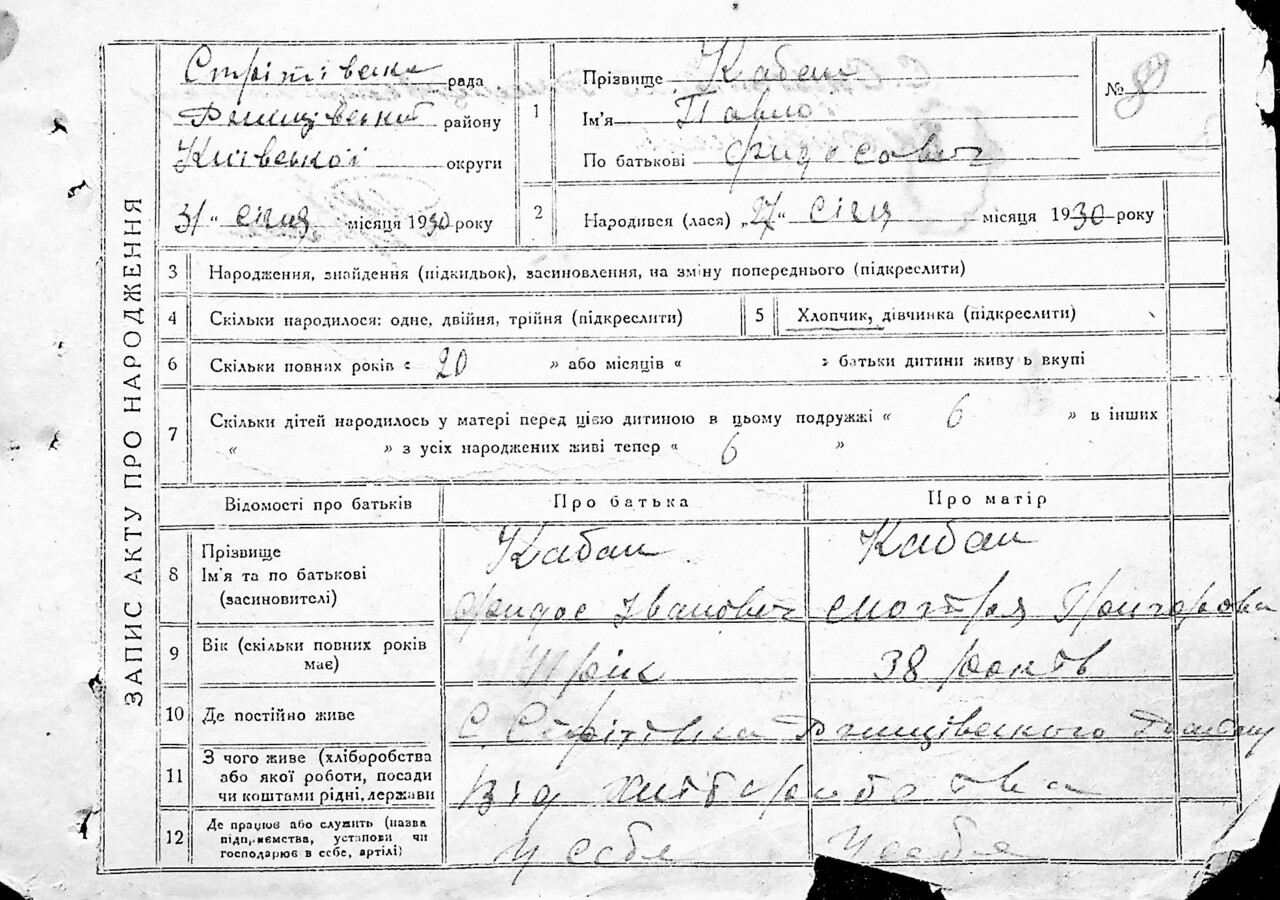 ЗАПИС АКТУ ПРО НАРОДЖЕННЯ
Стрітівска рада
району
Київської округи
31 " січня місяця 1930 року
1
Прізвище Кабан
Ім'я Павло
По батькові Фидосович
№
2
Народився (лася) „27" січня місяця 1930 року
3 Народження, знайдення (підкидьок), засиновлення, на зміну попереднього (підкреслити)
4 Скільки народилося: одне, двійня, трійня (підкреслити)
5 Хлопчик, дівчинка (підкреслити)
6 Скільки повних років « 20 » або місяців « » батьки дитини живуть вкупі
7 Скільки дітей народилось у матері перед цією дитиною в цьому подружжі « 6 » в інших
« » з усіх народжених живі тепер « 6 »
Відомості про батьків Про батька Про матір
8 Прізвище
Ім'я та по батькові
(засиновителі)
Кабан
Фидос Іванович
Кабан
9 Вік (скільки повних років
має)
41 рік
38
10 Де постійно живе
С. Стрітівка
11 З чого живе (хліборобства
або якої роботи, посади
чи коштами рідні, держави
Від
12 Де працює або служить (назва
підприємства, установи чи
господарює в себе, артілі)
у себе
у себе